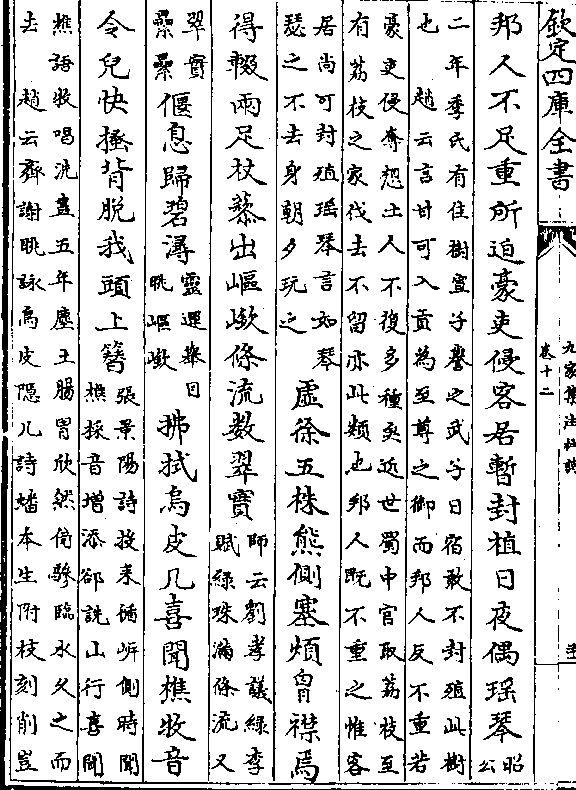 欽定四庫全書
九家集注杜詩
卷十二
邦人不足重所迫豪吏侵客居暫封植日夜偶瑶琴
昭
公
二年季氏有佳樹宣子譽之武子曰宿敢不封殖此樹
也 趙云言甘可入貢為至尊之御而邦人反不重若
豪吏侵奪怨土人不復多種矣近世蜀中官取荔枝至
有荔枝之家伐去不留亦此類也邦人既不重之惟客
居尚可封殖瑶琴言如琴
瑟之不去身朝夕玩之
虛徐五株態側塞煩胷襟焉
得輟雨足杖藜出嶇嶔條流數翠實
師云劉孝議綠李
賦綠珠滿條流又
翠實
纍纍
偃息歸碧潯
靈運舉目
眺嶇嶔
拂拭烏皮几喜聞樵牧音
令兒快搔背脫我頭上簪
張景陽詩投来循岍側時聞
樵採音增添郤詵山行喜聞
樵語牧唱洗盡五年塵土腸胃欣然倚驂臨水久之而
去 趙云齊謝眺詠烏皮隱几詩蟠木生附枝刻削豈